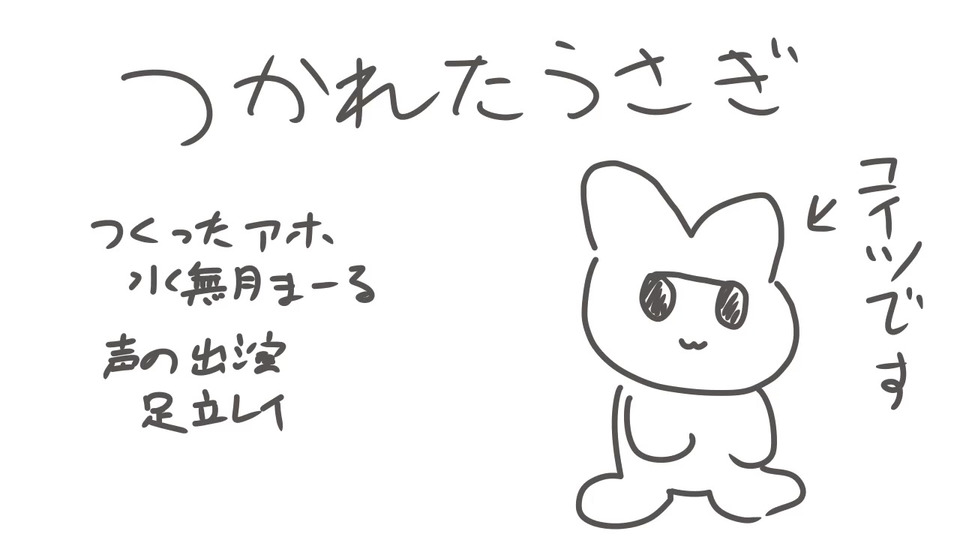 つかれたうさぎ
つくったアホ
水無月まーる
声の出演
足立レイ
コイツです